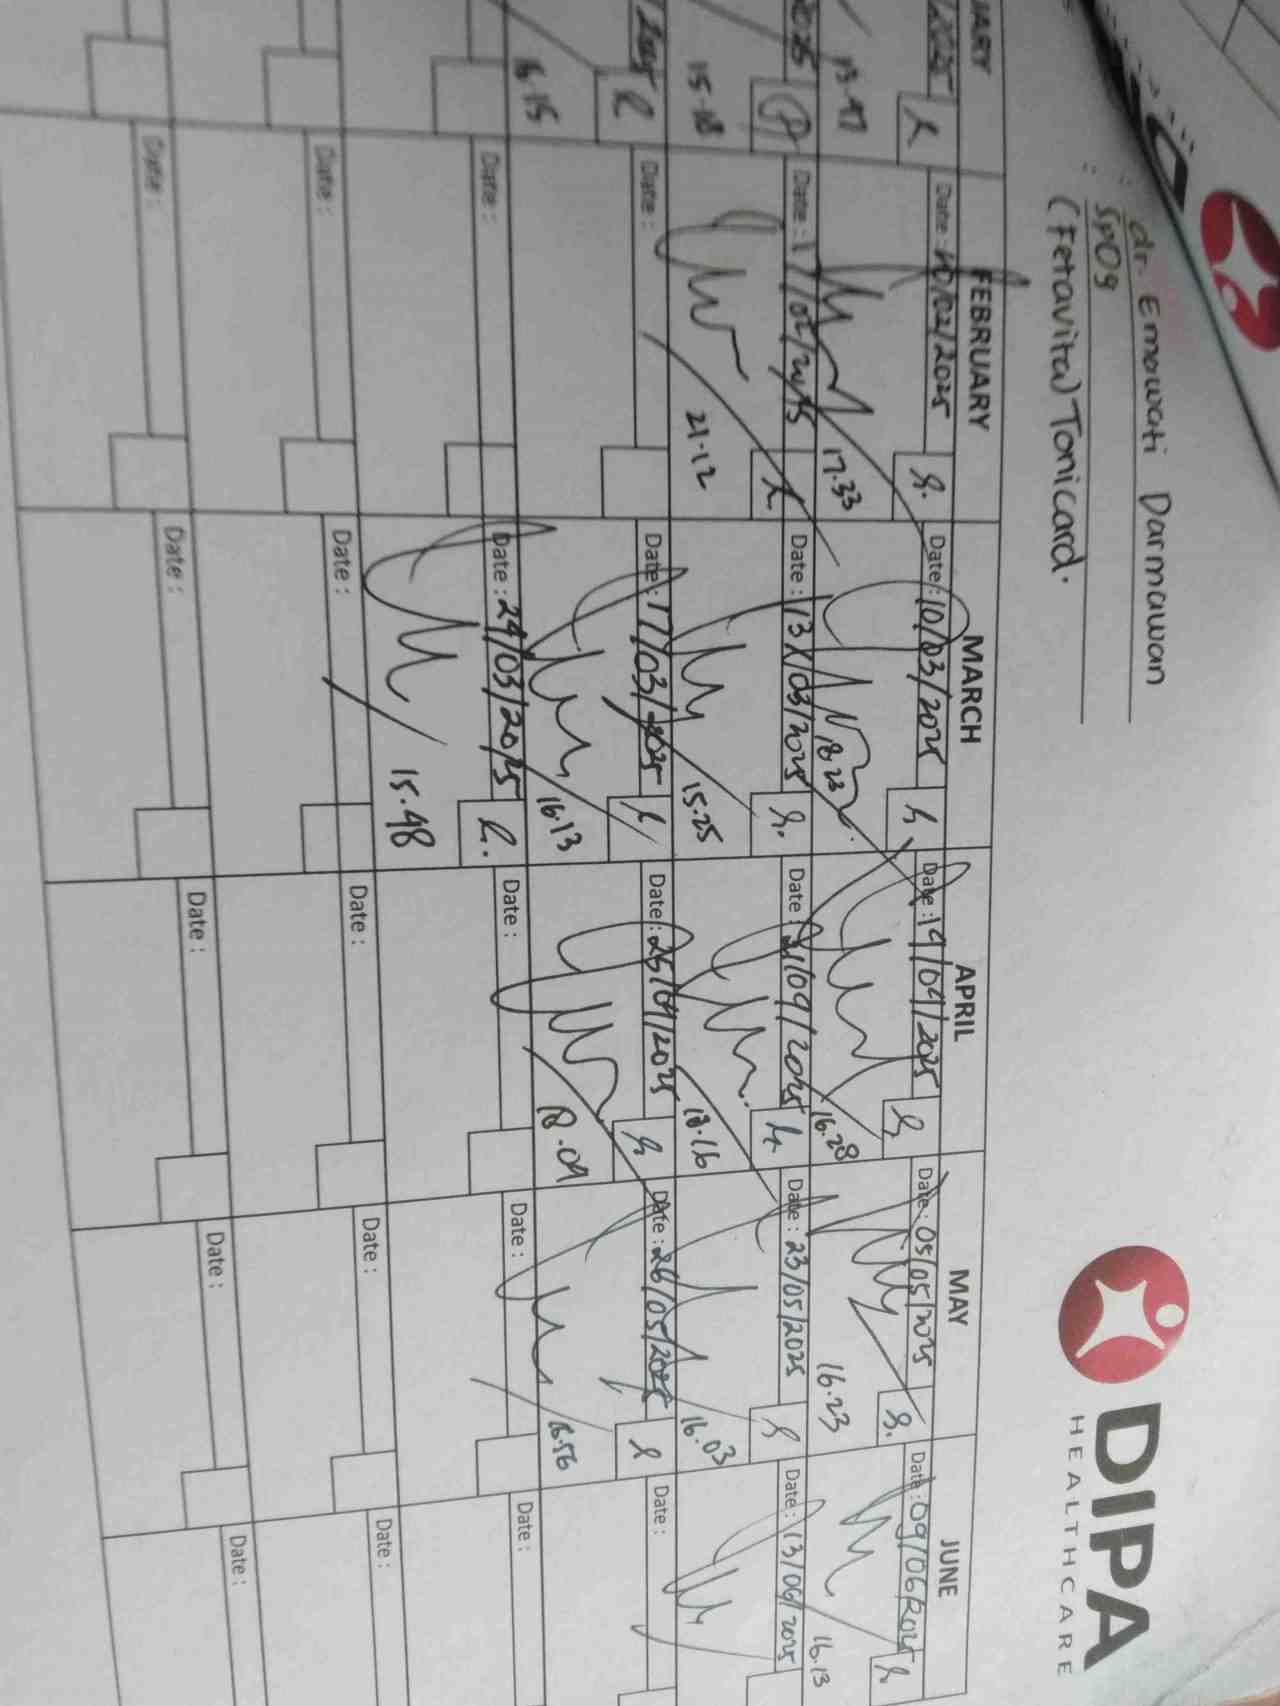 DIPA
HEALTHCARE
: dr. Ernawati Darmawan
: SpOg
(Fetavita) Tonicard.
UARY
FEBRUARY
MARCH
APRIL
MAY
JUNE
2025
Date : 10/02/2025
Date : 10/03/2025
Date : 14/04/2025
Date : 05/05/2025
Date : 09/06/2025
17.33
18.23
16.28
16.23
16.13
2025
Date : 17/02/2025
Date : 13/03/2025
Date : 21/04/2025
Date : 23/05/2025
Date : 13/06/2025
15.18
21.12
15.25
18.16
16.03
2025
Date :
Date : 17/03/2025
Date : 25/04/2025
Date : 26/05/2025
Date :
16.15
16.13
18.09
16.56
Date :
Date : 24/03/2025
Date :
Date :
Date :
15.48
Date :
Date :
Date :
Date :
Date :
Date :
Date :
Date :
Date :
Date :